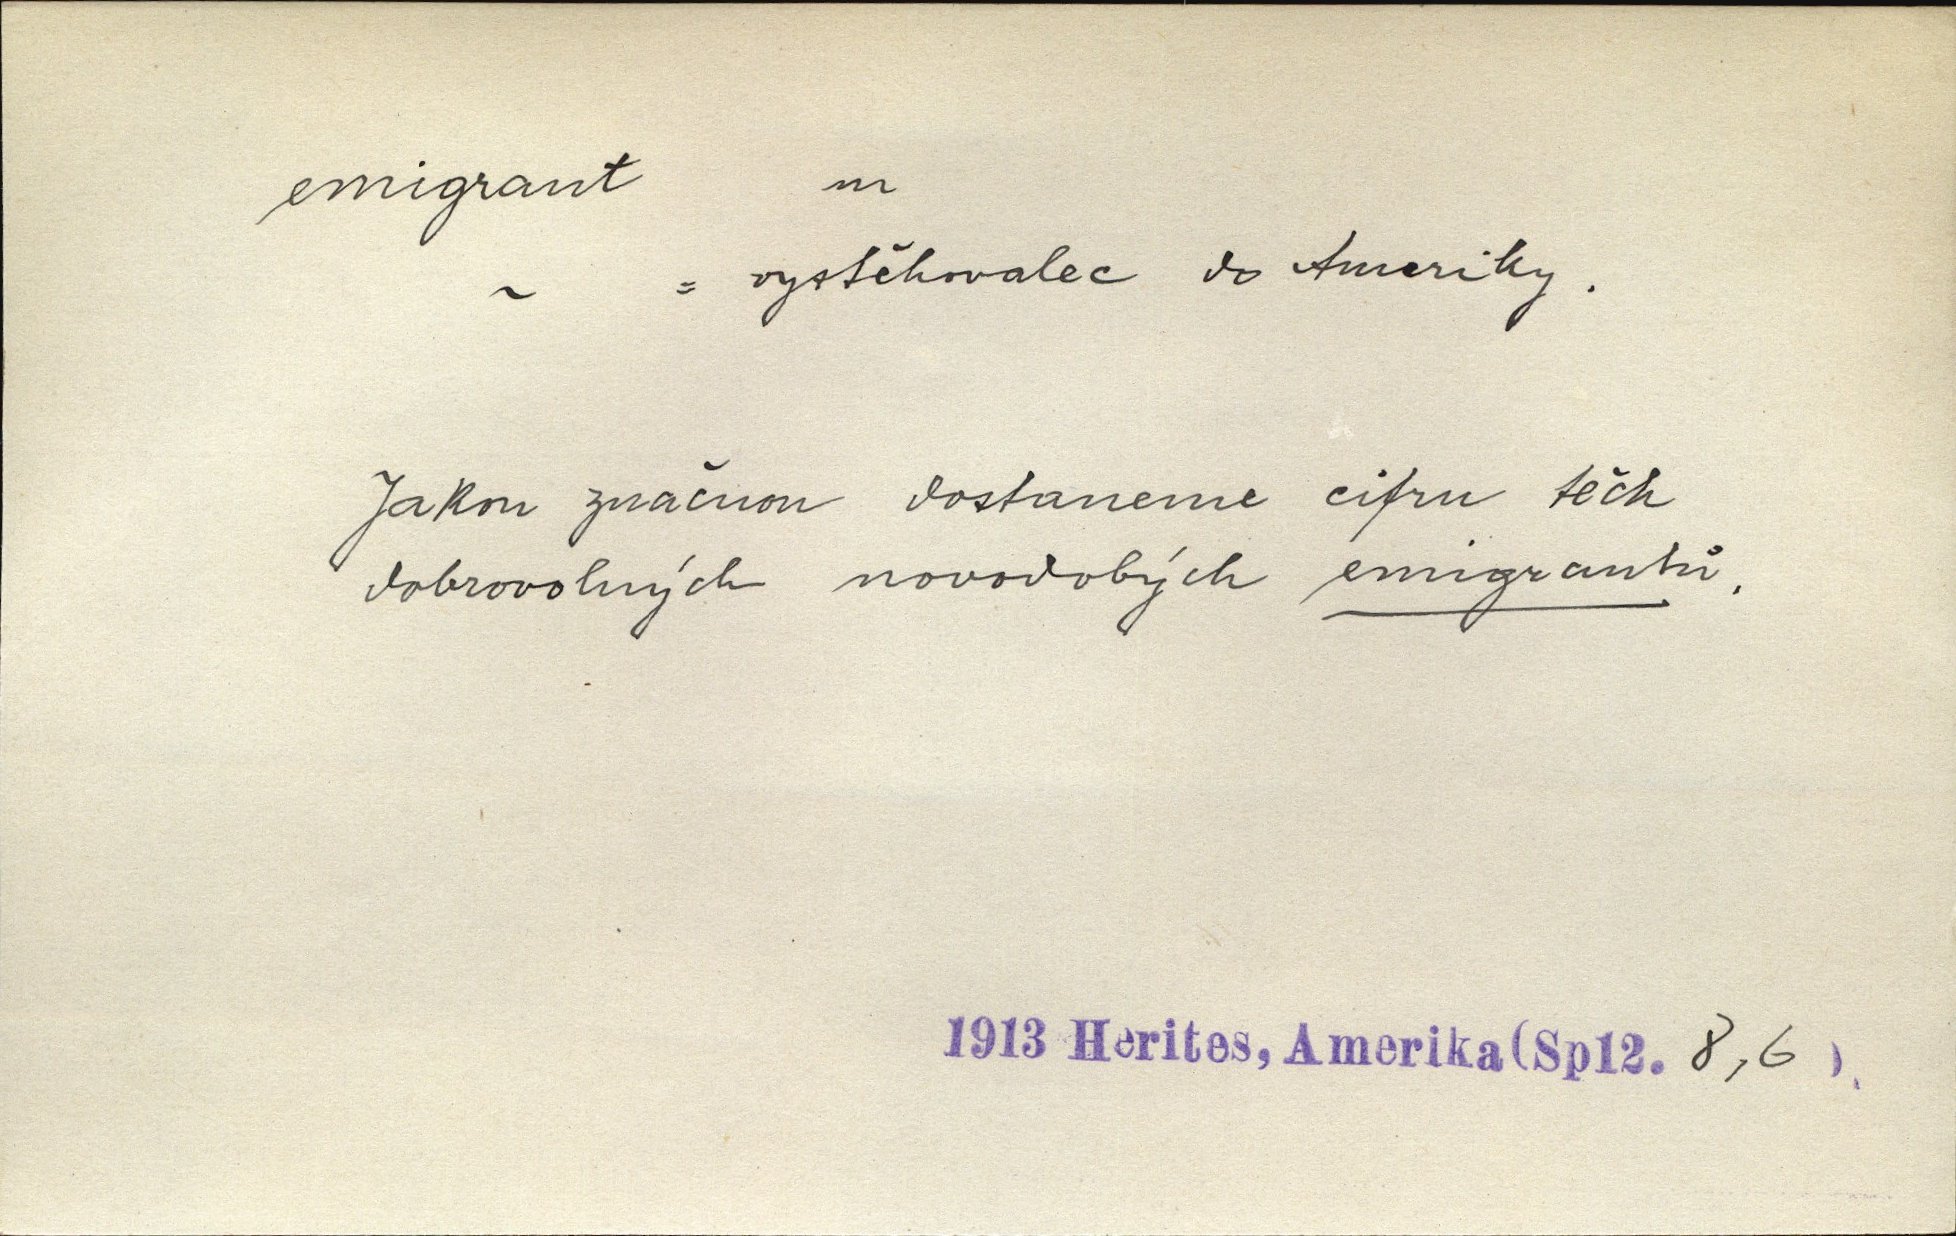 emigrant m
~ = vystěhovalec do Ameriky.
Jakou značnou dostaneme cifru těch
dobrovolných novodobých emigrantů.
1913 Herites, Amerika (Sp12. 8,6).